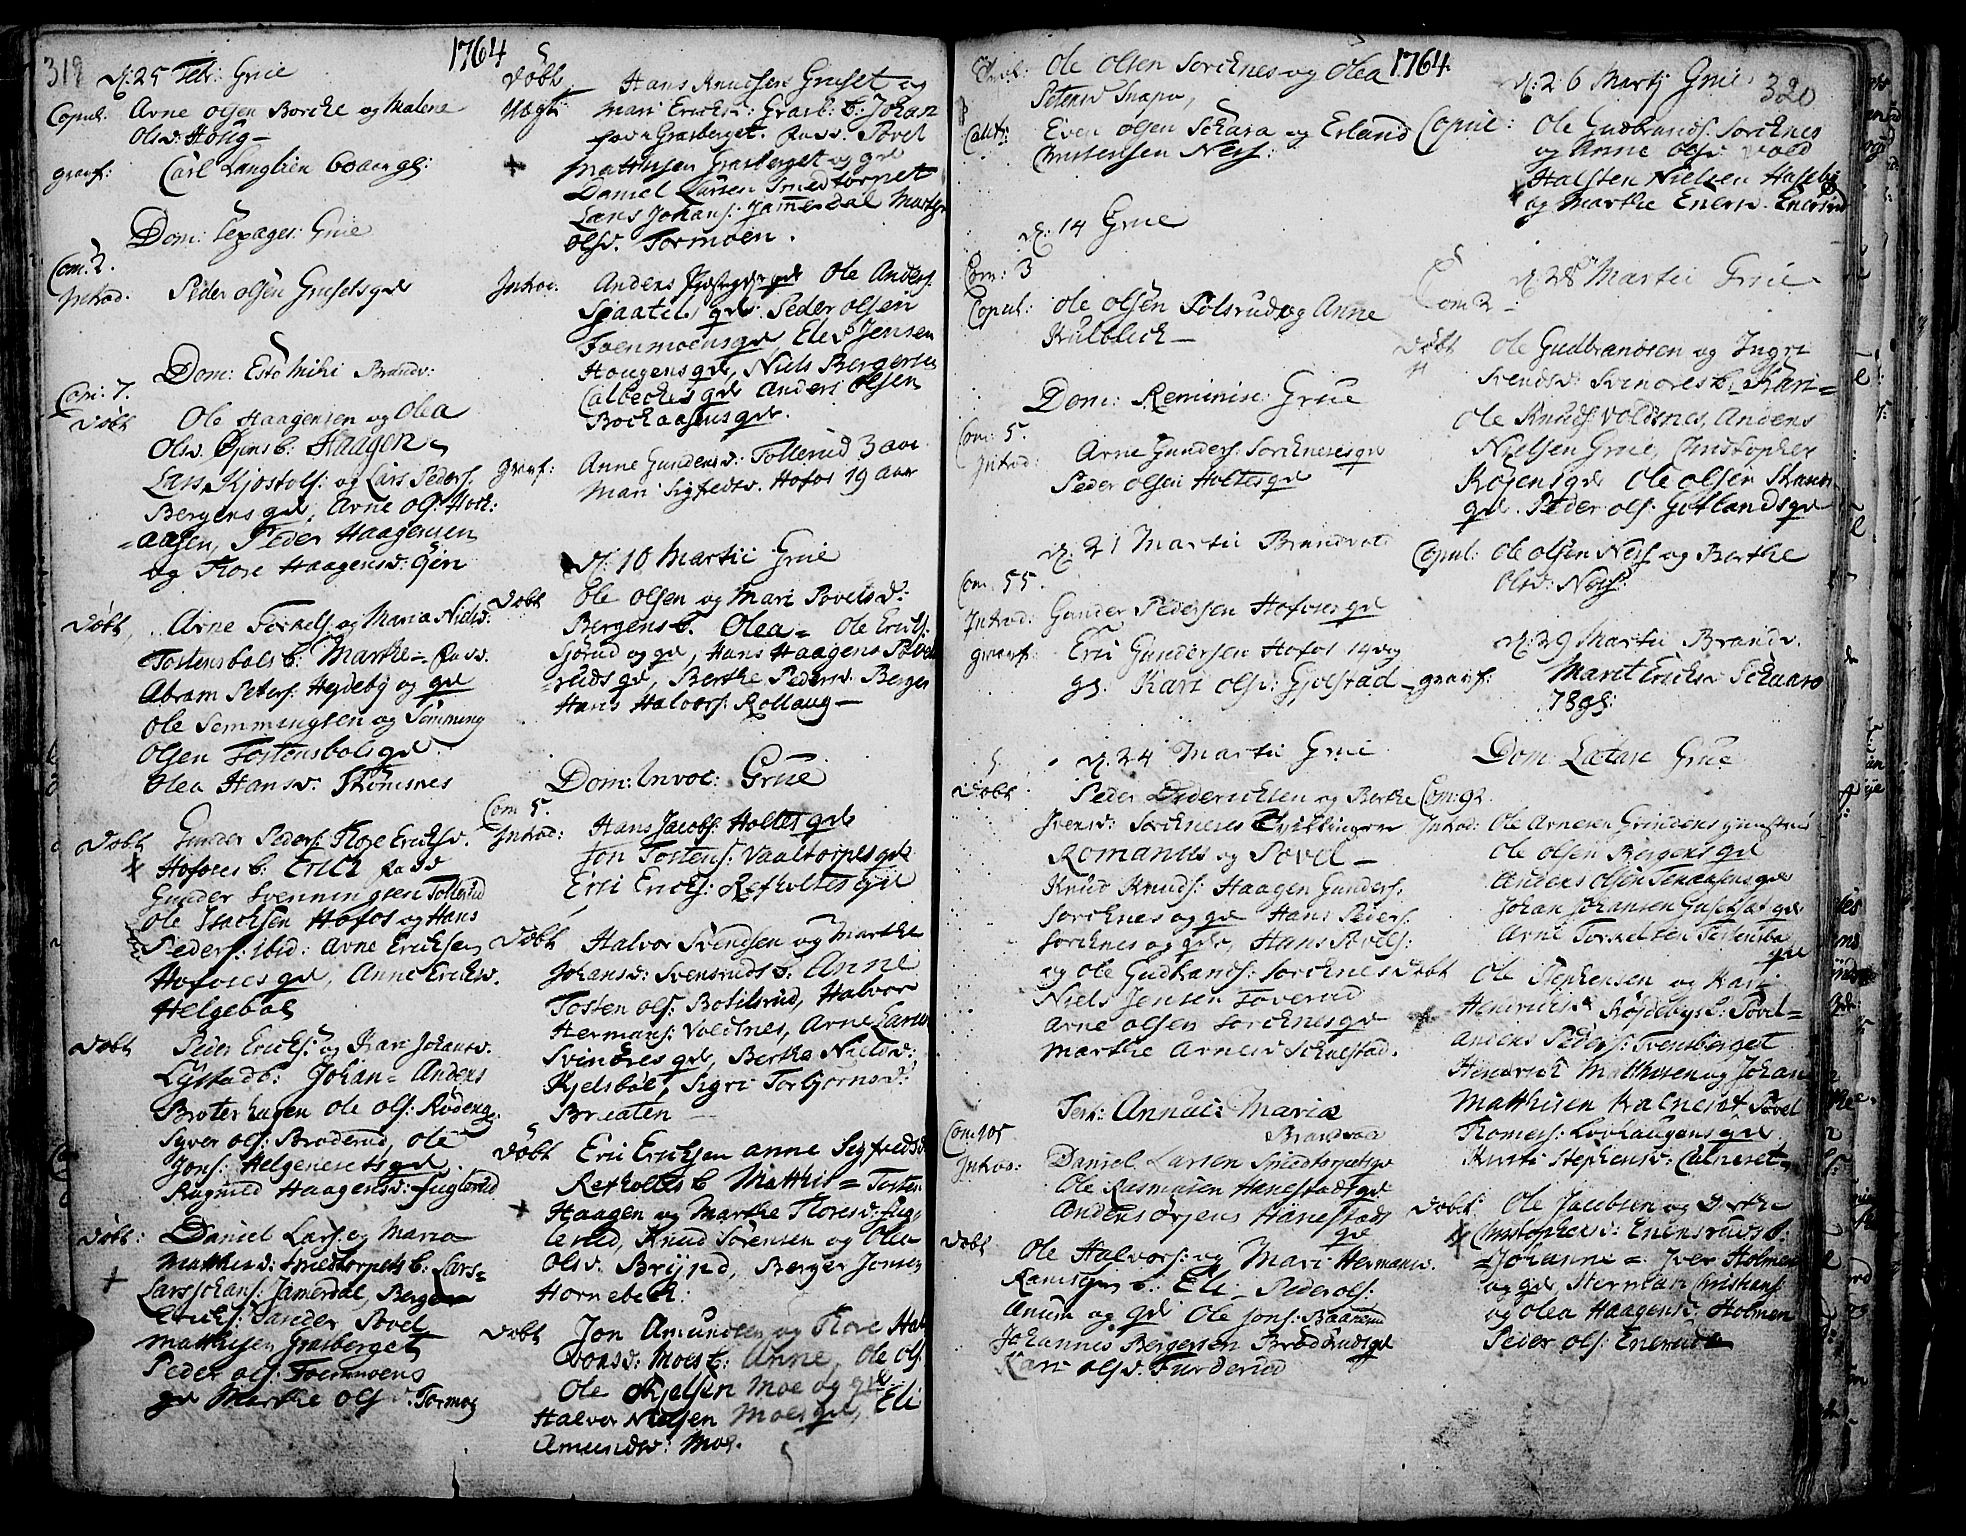 319
1764
d: 25 Febr: Grue
Copul: Arne Olsen Borche og Malene
Olsd: Houg
graf: Carl Langlien 60 aar gl:
Dom: Sexages: Grue
Com: 2.
Introd. Peder Olsen Grusets qde
Dom: Esto mihi Brandv:
Com: 7.
Døbt Ole Haagensen og Olea
Olsd. b: Haagen
Lars Kjøstols: og Lars Peders.
Bergens qde, Arne Ols:
aasen, Peder Haagensen
og Thore Haagensd:
Døbt, Arne Torkels: og Maria Nielsd:
Tostensbøls b: Marthe = Fadd.
Abram Peters: Hejdeby og qde
Ole Semmingsen og Semming
Olsen Tostensbøls qde
Olea Hansd. Strømsnes
Døbt Gunder Peders: Thore Ericksd.
Hofoses b: Erich Fadd
Gunder Svenningsen Tollerud
Ole Isachsen Hofos og Hans
Peders: ibid: Arne Ericksen
Hofoses qde, Anne Ericksd.
Helgebøl
Døbt Peder Ericks: og Kari Johansd.
Lystad b: Johan = Anders
Broterhagen Ole Ols: Rødeng
Syver Ols: Broderud, Ole
Jons: Helgeneset qde.
Ragnild Haagensd: Fuglerud
Døbt: Daniel Lars: og Maria
Matthisd: Smedtorpets b: Lars =
Lars Johans: Jamerdal, Berger
Ericks: Sander Povel
Matthisen Grasberget
Peder Ols: Foenmoens
qde Marthe Olsd: Tormoe
Døbt Hans Knudsens Gruset og
Mari Ericksd: Grasb: b: Johan
Grasberget Fadd. Povel
Matthisen Grasberget og qde
Daniel Larsen Smedtorpet
Lars Johans: Jammerdal Marthe
Olsd. Tormoen.
Introd: Anders qde Ole Anders:
Spaatels qde Peder Olsen
Foenmoens qde, Elef Jensen
Hougens qde, Niels Bergersen
Calbechs qde Anders Olsen
Bochaasens qde.
graf: Anne Gundersd: Tollerud 3 aar
Mari Sigfredsd. Hofos 19 aar
d: 10 Martii Grue
Døbt Ole Olsen og Mari Povelsd:
Bergens b. Olea = Ole Ericks:
Sjørud og qde, Hans Haagens Povel
ruds qde, Berthe Pedersd: Berger
Hans Halvors: Rollaug
Dom: Invoc: Grue
Com 5.
Introd: Hans Jacobs: Holtes qde
Jon Tostens: Vaaltorpes qde
Erii Ericks: Refholtes qde
Døbt Halvor Svendsen og Marthe
Johansd: Svensruds b: Anne
Tosten Ols: Botilsrud, Halvor
Hermans: Voldsnes, Arne Larsen
Svenøres qde, Berthe Nielsd:
Kjelsbøl, Sigri Torbjørnsd:
Braaten
Døbt Erii Ericksen Anne Sigfredsd.
Refholtes b Matthis = Tosten
Haagen og Marthe Thoresd: Fug
lerud, Knud Sørensen og Olea
Olsd. Brynd, Berger Jonsen
Hornebech:
Døbt Jon Amundsen og Thore Hal
vorsd: Moes b: Anne, Ole Ols:
Ole Kjelsen Moe og qde
Halvor Nielsen Moes qde, Eli
Amundsd: Moe.
1764
320
Ole Olsen Sorchnes og Olea
Petersd Snapa,
Even Olsen Schara og Erland
Christensen Ness:
d: 14 Grue
Com: 3
Copul: Ole Olsen Polsrud og Anne
Kulblech
Dom: Reminisc: Grue
Com: 5.
Introd: Arne Gunders: Sorchneses qde
Peder Olsen Holtes qde
d. 21 Martii Brandvold
Com: 55.
Introd: Gunder Pedersen Hofoses qde
graf: Erii Gundersen Hofos 14 dg
gl. Kari Olsd: Gjølstad
d. 24 Martii Grue
Døbt Peder Dideriksen og Berthe
Svensd: Sorchneses Tvillinger
Romanus og Povel
Knud Knuds: Haagen Gunders.
Sorchnes og qde Hans Peders:
Sorchnes og qde, Hans Povels:
og Ole Gudbrands: Sorchnes
Niels Jensen Toverud
Arne Olsen Sorchnes qde
Marthe Arnesd Schulstad.
Fest: Annunt: Mariæ
Brandvold
Com: 105
Introd: Daniel Larsen Smedtorpets qde
Ole Rasmusen Hanestads qde
Anders Ørjens Hanestads
qde
Døbt Ole Halvors: og Mari Hermansd.
b. Eli = Peder Ols:
og qde Ole Jons: Baarerud
Johannes Bergersen Broderuds qde
Kari Olsd. Furderud
d: 26 Martij Grue
Copul: Ole Gudbrands: Sorchnes
og Anne Olsd Vold
Halsten Nielsen Haseby
og Marthe Enersd. Enersrud
d: 28 Martii Grue
Com 2
Døbt Ole Gudbrandsen og Ingri
Svendsd: Svenøres b. Kari =
Ole Knuds: Voldsnes, Anders
Nielsen Grue, Christopher
Røgens qde Ole Olsen
qde. Peder Ols: Gotlands qde
Copul: Ole Olsen Ness og Berthe
Olsd. Ness:
d: 29 Martii Brandv.
graf: Marit Ericksd Scharo
78 gl:
Dom Lætare Grue
Com: 92.
Introd: Ole Arnesen Grindens
Ole Olsen Bergens qde
Anders Olsen qde
Johan Johansen qde
Arne Torkelsen
qde
Døbt Ole Stephensen og Kari
Hendricksd Røgdebyes b: Povel =
Anders Peders: Svensberget
Hendrich Matthisen og Johan
Matthisen Kalneset, Povel
Thomes: Lovhaugens qde
Kirsti Stephensd: Calneset
Døbt Ole Jacobsen og Berthe
Christophersd: Enersruds b:
= Johanne = Iver Holmen
og qde, Herman Christians:
og Olea Haagensd: Holmen
Peder Ols: Enersrud